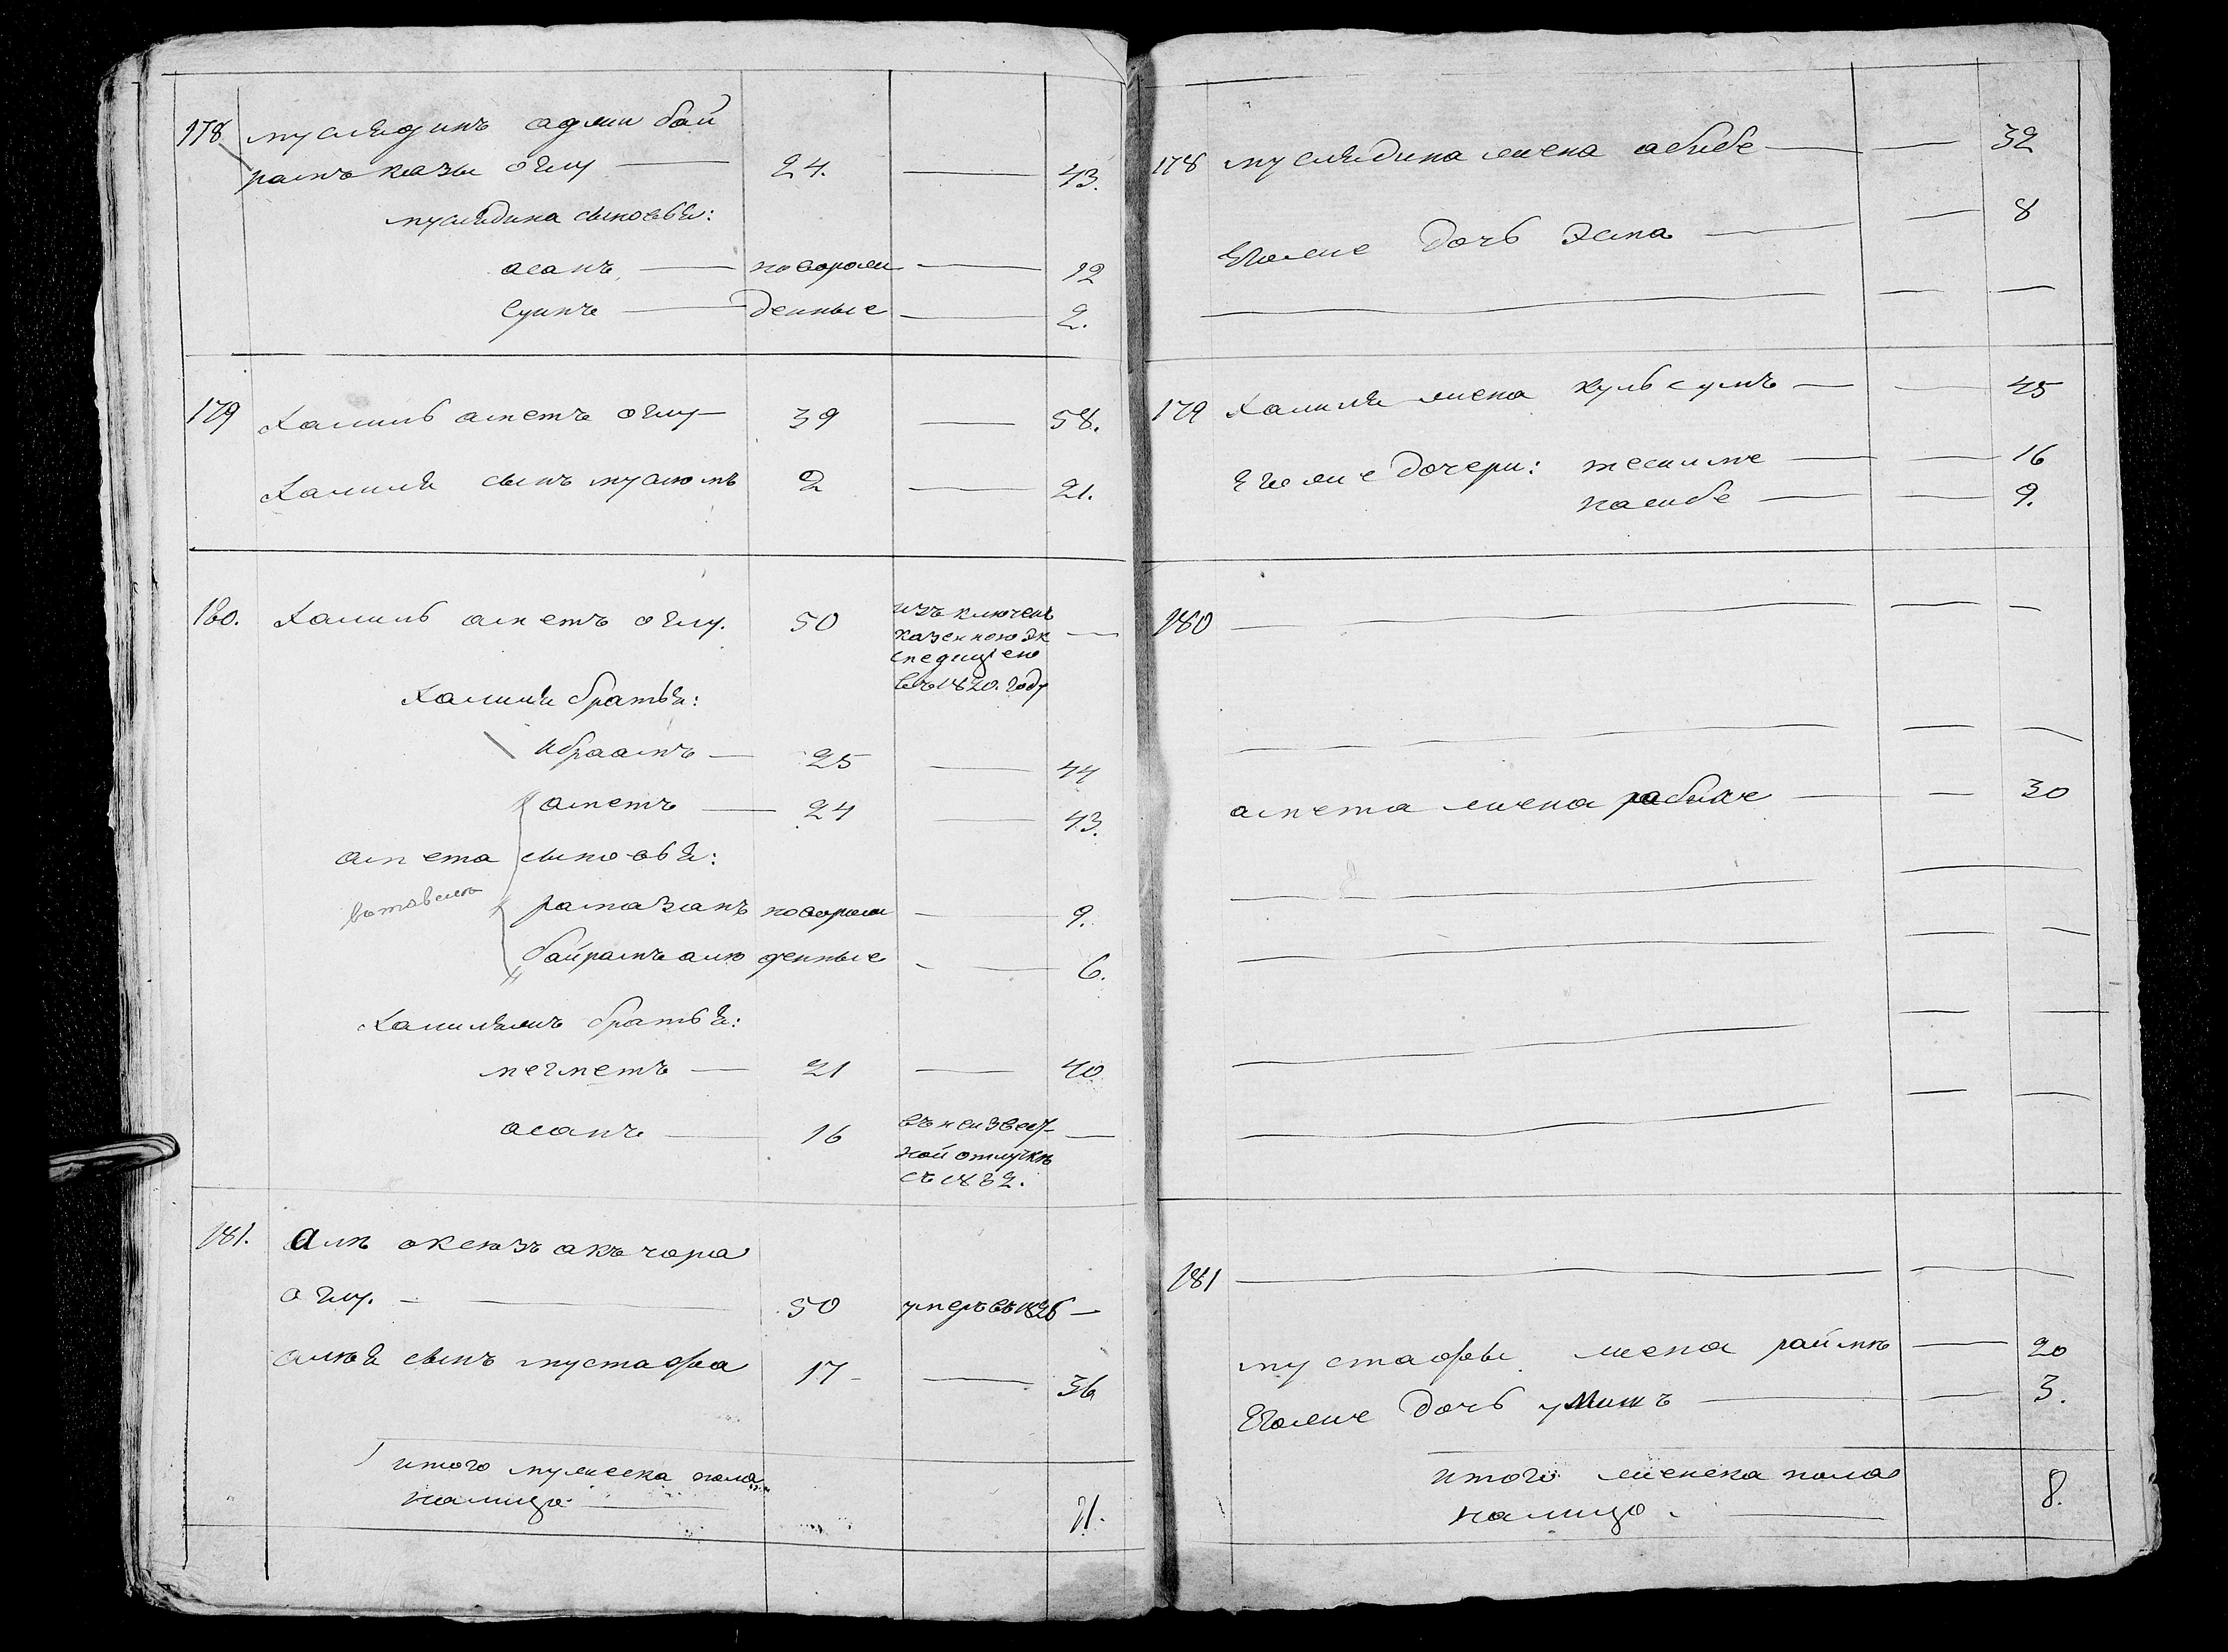 178 муслядинъ аджи бай
рамъ казы оглу — 24. — 43.
муслядина сыновья:
асанъ — новорож — 12
Суинъ — денные — 2.
179 Халиль аметъ оглу — 39 — 58.
Халиля сынъ муслюмъ 2 — 21.
180. Халиль аметъ оглу. 50 изъключенъ
казенною эк —
спедицiею
въ 1820. году
Халиля братья:
Ибраамъ — 25 — 44
аметъ — 24 — 43.
амета сыновья:
рамазанъ новорож — 9.
байрамъ али денные — 6.
Халилямъ братья:
мегметъ — 21 — 40
асанъ — 16 въ неизвест —
ной отлучкѣ
съ 1832.
181. али океюзъ акъ чора
оглу. — 50 умеръ въ 1826 —
алия сынъ мустафа 17 — 36
итого мужеска пола
налицо — 11.
178 муслядина жена абибе — — 32
Егоже дочь Эспа — — 8
— — —
179 Халиля жена кульсумъ — — 45
Егоже дочери: тесилме — — 16
насибе — — 9.
180 — — —
— — —
амета жена рабие — — 30
— —
— — —
— — —
— — —
181 — — —
мустафы жена райме — 20
Егоже дочь умишъ — — 3.
итого женска пола
налицо. — 8.